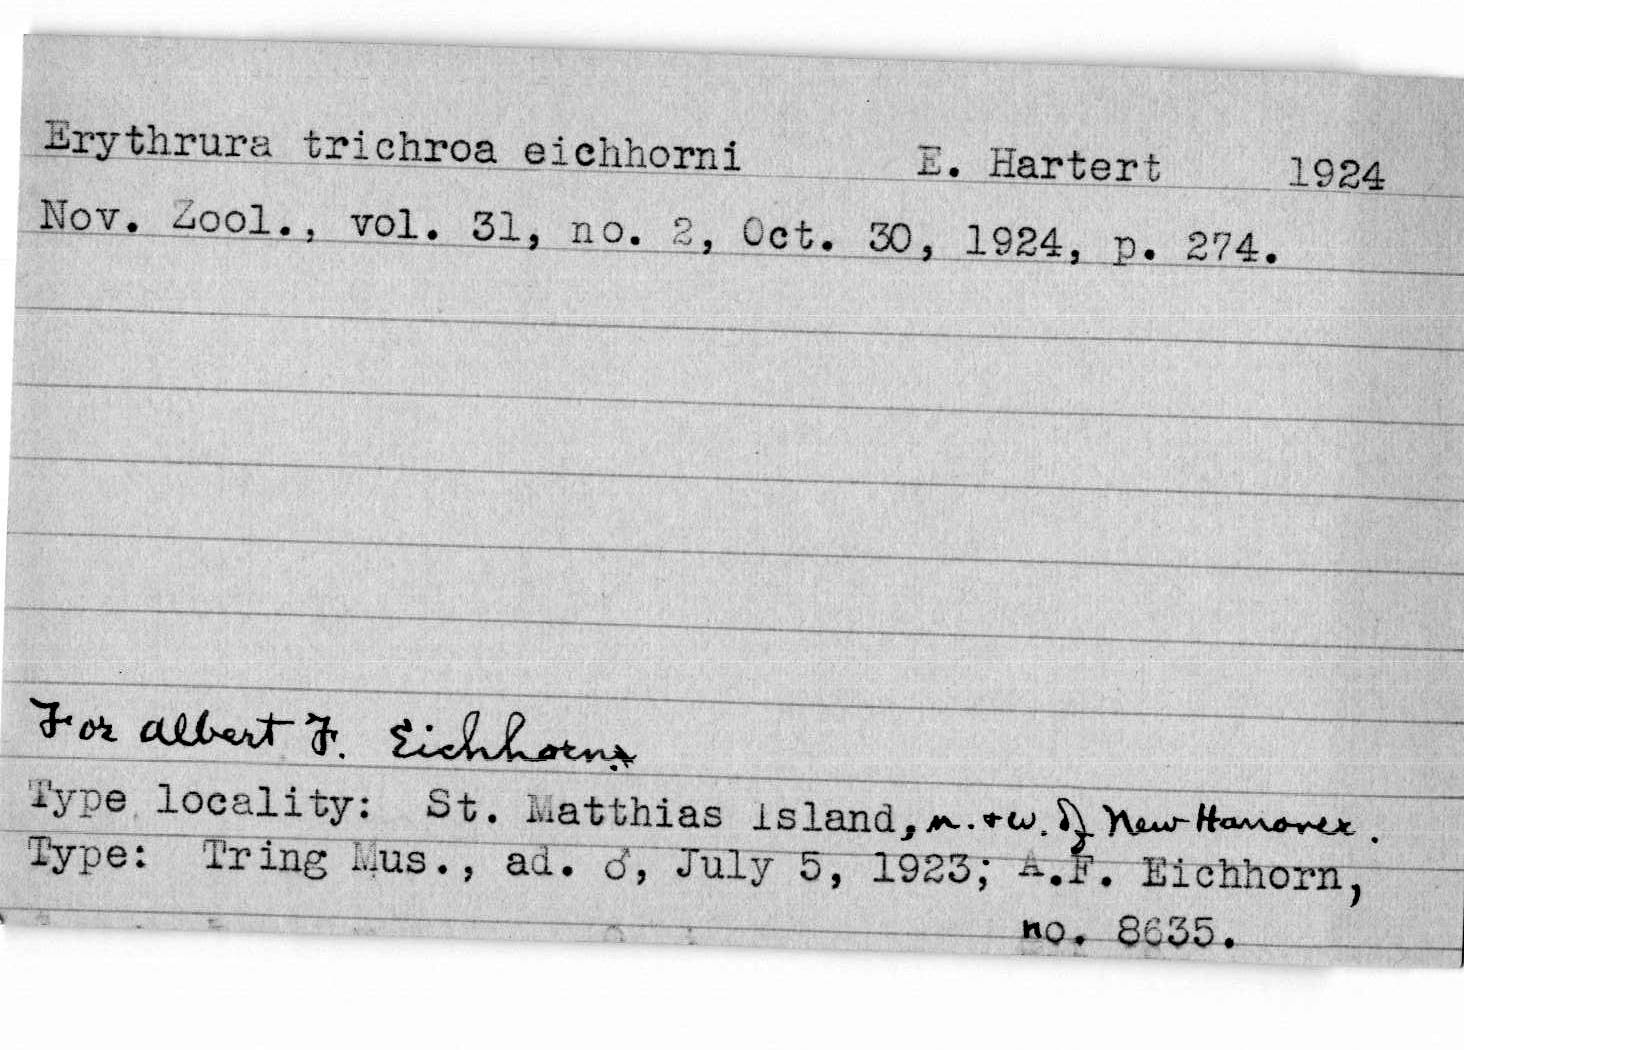 Erythrura trichroa eichhorni E. Hartert 1924
Nov. Zool., vol. 31, no. 2, Oct. 30, 1924, p. 274.
For Albert F. Eichhorn.
Type locality: St. Matthias Island, n. + w. of New Hanover.
Type: Tring Mus., ad. ♂, July 5, 1923; A.F. Eichhorn,
no. 8635.